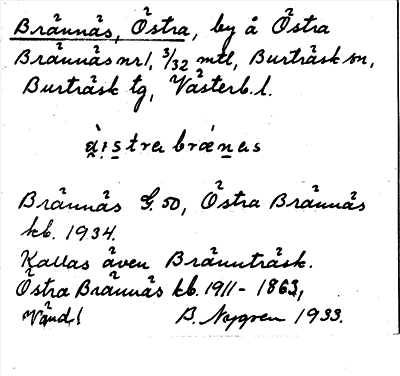 Brännäs, Östra, by å Östra
Brännäs nr 1, 3/32 mtl, Burträsk sn,
Burträsk tg, Västerb. l.
Brännäs G. 50, Östra Brännäs
kb. 1934.
Kallas även Brännträsk.
Östra Brännäs kb. 1911-1863,
Vänd! B. Nygren 1933.